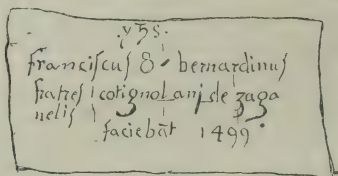 .yhs.
franciſcus & bernardinuſ
fratres cotignolani de zaga
nelis
faciebāt 1499